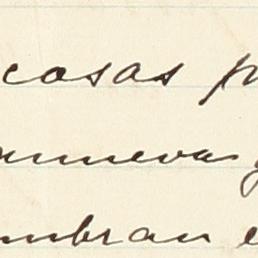 cosas p
nuevas y
mbran e